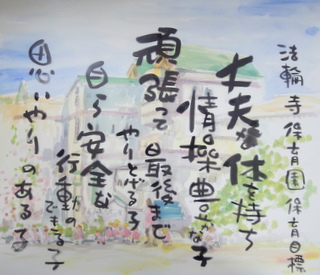 法輪寺保育園保育目標
大夫な体を持ち
情操豊かな子
頑張って最後まで
やりとげる子
自ら安全な
行動のできる子
思いやりのある子